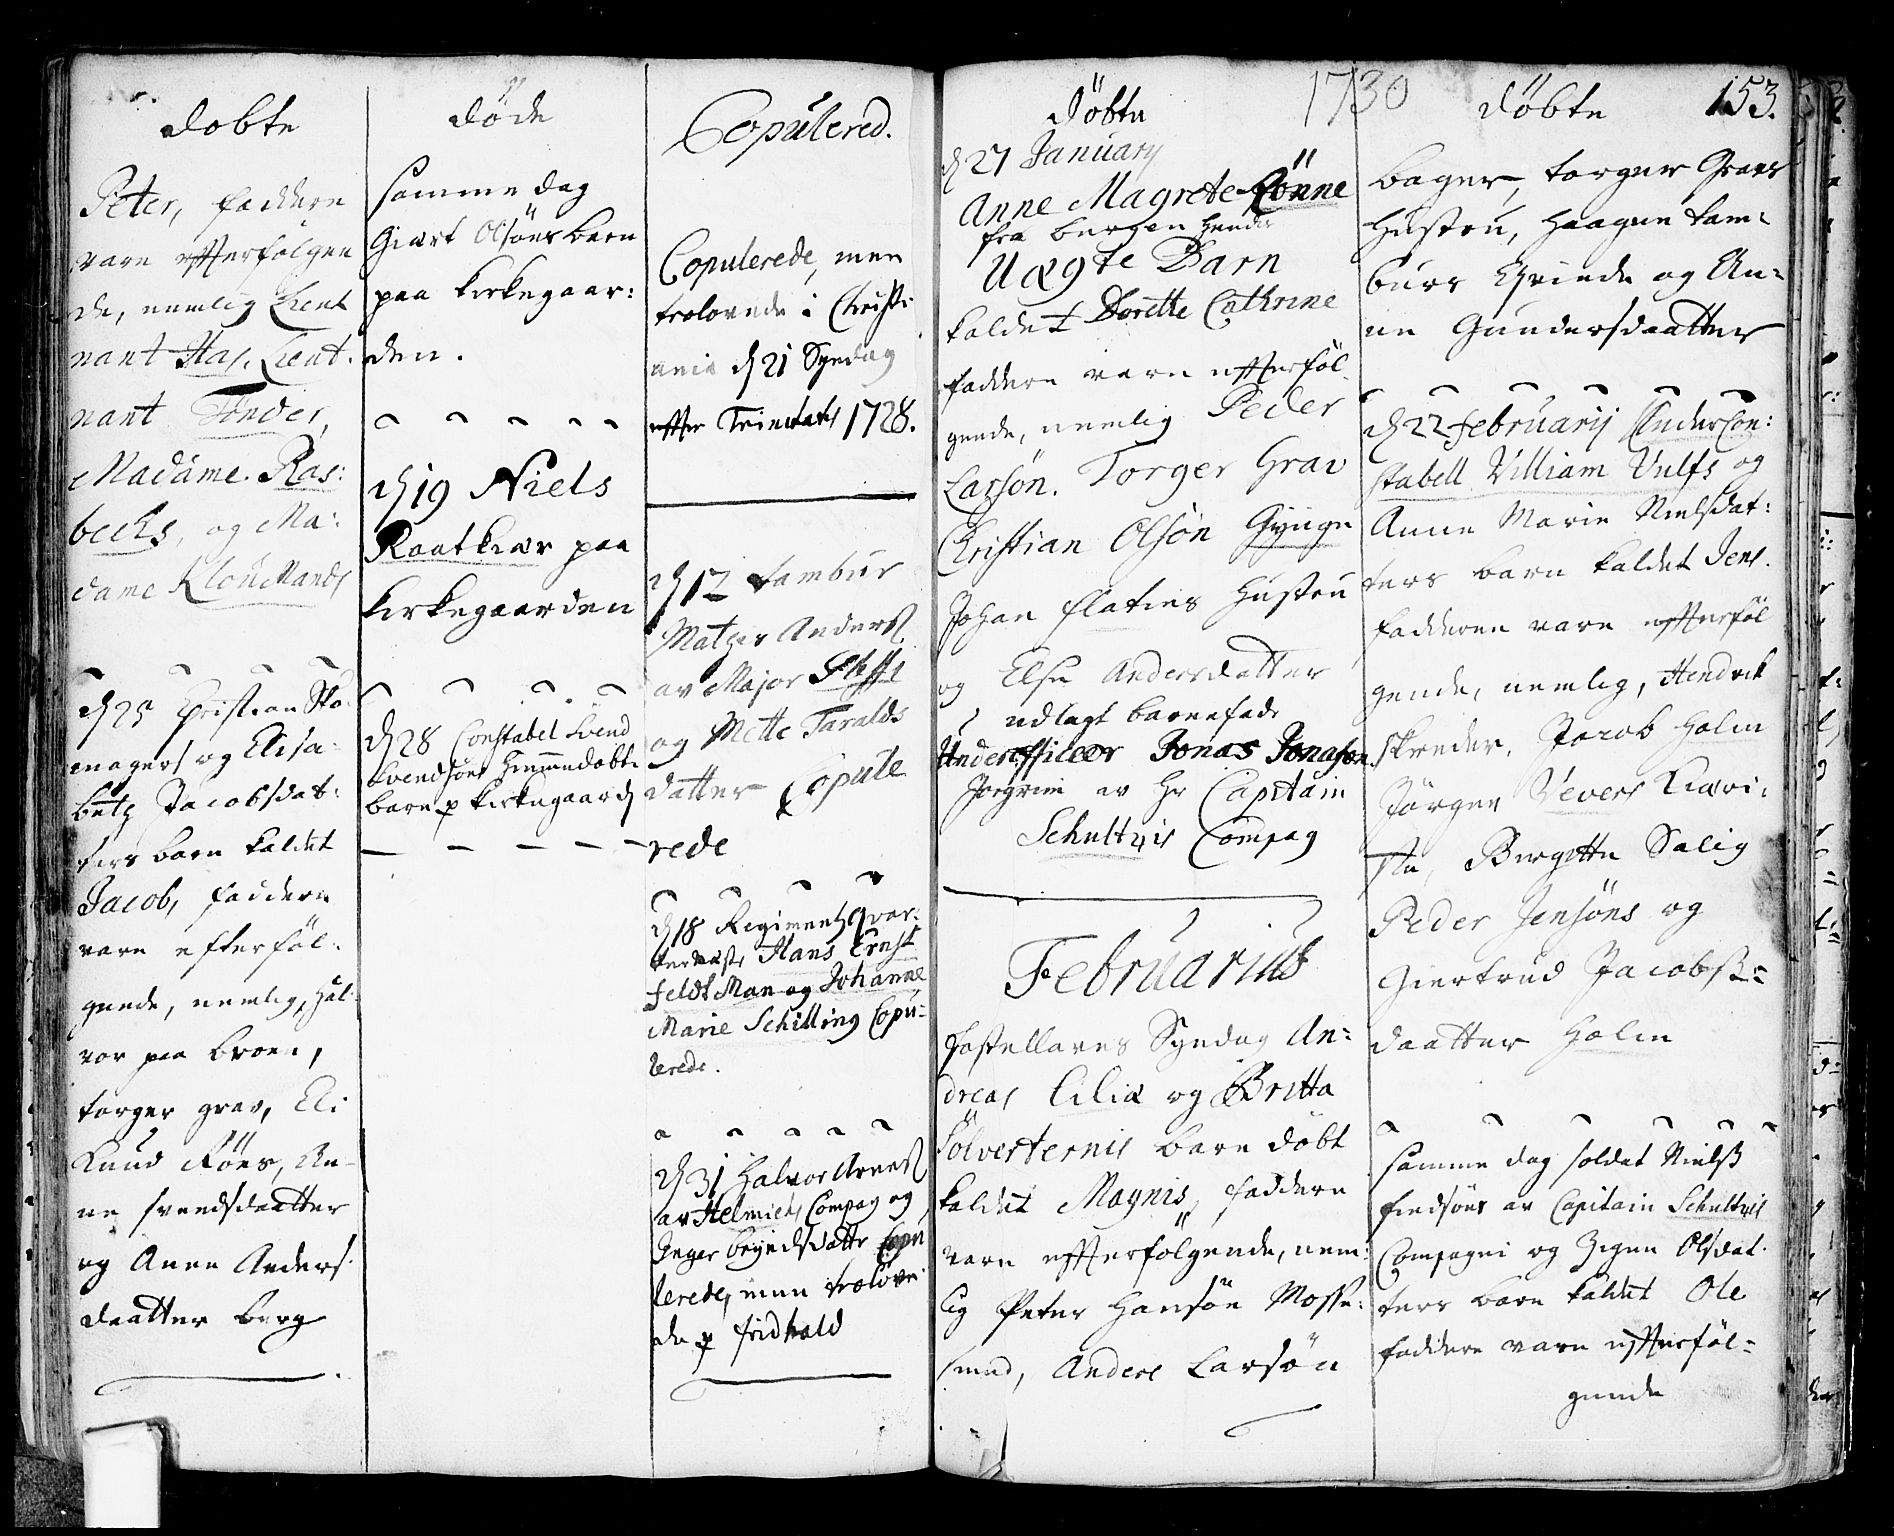 Døbte
Peter, faddere
vare effterfølgen
de, nemlig Lieut
nant Has. Lieut.
nant Tønder,
Madame. Ras:
bechs, og Ma:
dame Klouemands
d 25 Christian Sko
magers og Elisa-
beth Jacobsdat:
ters barn kaldet
Jacob, faddere
vare efterføl-
gende, nemlig, Hal-
vor paa broen,
torger grav, Eli
Knud Røers, An-
ne Svendsdaatter
og Anne Anders
daatter berg
Døde
samme dag
Giært Olsøns barn
paa Kirkegaar:
den.
d 19 Niels
Raatkiær paa
Kirkegaarden
d 28 Constabel Svend
Svendsøns hiemmedøbte
barn p Kirkegaard
Copulered.
Copulerede, men
trolovede i Christi
ania d 21 Syndag
effter Trinitatis 1728.
d 12 tambur
Matzes Anders
av Major
og Mette Taralds
datter Copule
rede
d 18 Regiments Qvar:
termester Hans Ernst
feldt Man og Johanne
Marie Schilling Copu-
lerede.
d 31 Halvor Arnes
av Helmichs Compag og
Inger Bryndsdatter Copu
lerede, men trolove
de p fridhald
1730
Døbte
d 27 January
Anne Magrete Rønne
fra bergen hendes
Uægte Barn
kaldet Dorette Cathrine
faddere vare effterføl
gende, nemlig Peder
Larsøn. Torger Grav
Christian Olsøn Gynge
Johan flaties Hustru
og Else Andersdatter
udlagt barnefade
Underofficeer Jonas Jonasøn
Jorgrim av Hr Capitain
Schultzis Compag
Februarius
fastellavns Syndag An-
dreas Ciliæ og Britta
Sølversternis barn døbt
kaldet Magnis, faddere
vare effterfølgende, nem-
lig Peter Hansøn Mosse-
smed, Anders Larsøn
Døbte 153.
bager, torger Gravs
Hustru, Haagen tam-
burs Qvinde og An-
ne Gundersdaatter
d 22 februarij Undercon:
stabell Villiam Vulfs og
Anne Marie Nielsdat:
ters barn kaldet Jens.
fadderne vare effterføl
gende, nemlig, Hendrik
skreder, Jacob Holm
Jørgen Vevers Qvi
Birgitte Salig
Peder Jensøns og
Giertrud Jacobs-
daatter Holm
samme dag soldat Niels
findsøns av Capitain Schultzis
Compagni og Olsdat.
ters barn kaldet Ole
faddere vare effterføl-
gende